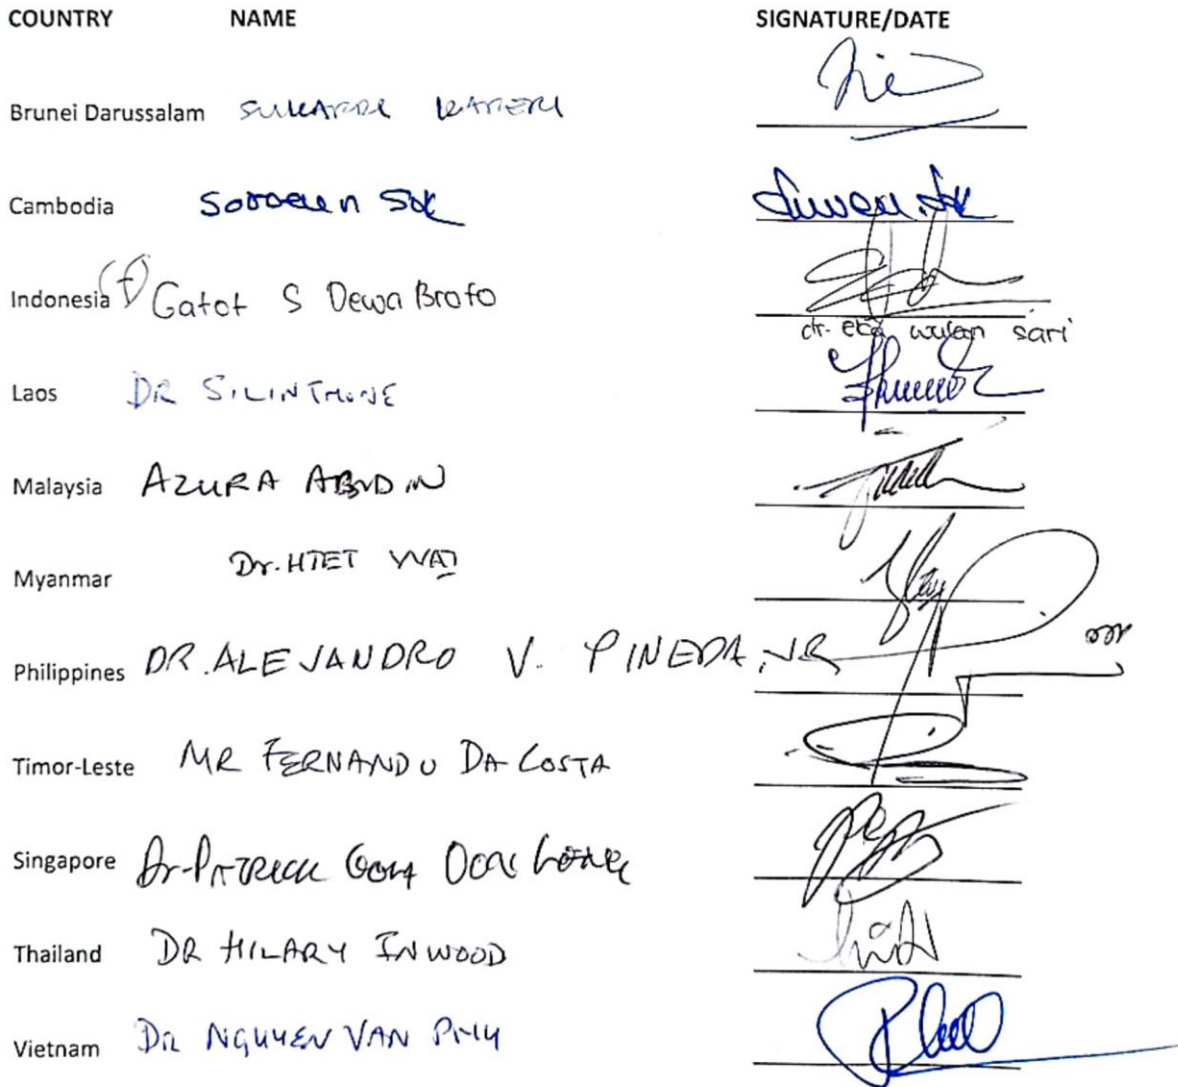 COUNTRY NAME SIGNATURE/DATE
Brunei Darussalam
Cambodia Sok
Indonesia (f) Gatot S Dewa Broto
dr. eka wulan sari
Laos DR SILINTHONE
Malaysia AZURA ABIDIN
Myanmar Dr. HTET WAI
Philippines DR. ALEJANDRO V. PINEDA, JR
Timor-Leste MR FERNANDO DA COSTA
Singapore Dr. PATRICK GOH
Thailand DR HILARY INWOOD
Vietnam DR NGUYEN VAN PHU